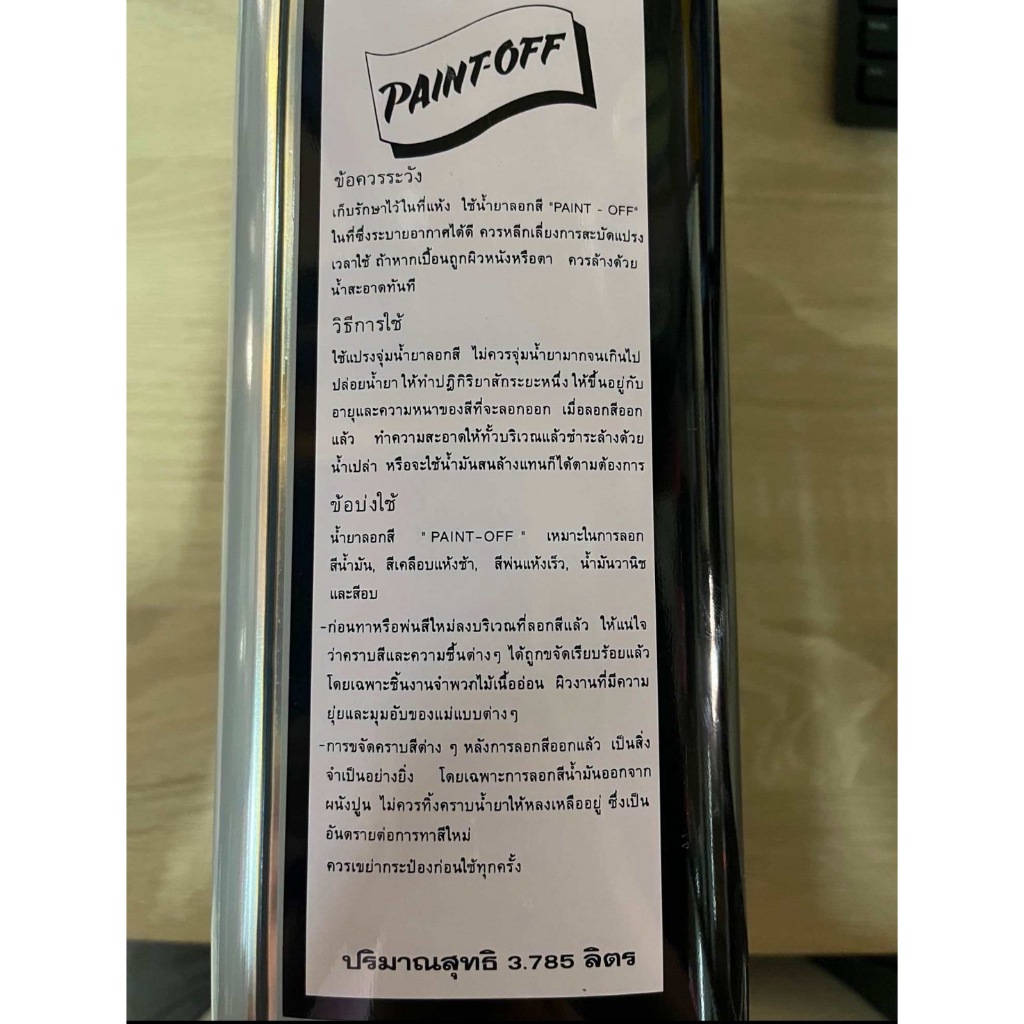 PAINT-OFF
ข้อควรระวัง
เก็บรักษาไว้ในที่แห้ง ใช้น้ำยาลอกสี "PAINT - OFF"
ในที่ซึ่งระบายอากาศได้ดี ควรหลีกเลี่ยงการสะบัดแปรง
เวลาใช้ ถ้าหากเปื้อนถูกผิวหนังหรือตา ควรล้างด้วย
น้ำสะอาดทันที
วิธีการใช้
ใช้แปรงจุ่มน้ำยาลอกสี ไม่ควรจุ่มน้ำยามากจนเกินไป
ปล่อยน้ำยา ให้ทำปฏิกิริยาสักระยะหนึ่ง ให้ขึ้นอยู่กับ
อายุและความหนาของสีที่จะลอกออก เมื่อลอกสีออก
แล้ว ทำความสะอาดให้ทั่วบริเวณแล้วชำระล้างด้วย
น้ำเปล่า หรือจะใช้น้ำมันสนล้างแทนก็ได้ตามต้องการ
ข้อบ่งใช้
น้ำยาลอกสี "PAINT-OFF" เหมาะในการลอก
สีน้ำมัน, สีเคลือบแห้งช้า, สีพ่นแห้งเร็ว, น้ำมันวานิช
และสีอบ
-ก่อนทาหรือพ่นสีใหม่ลงบริเวณที่ลอกสีแล้ว ให้แน่ใจ
ว่าคราบสีและความชื้นต่างๆ ได้ถูกขจัดเรียบร้อยแล้ว
โดยเฉพาะชิ้นงานจำพวกไม้เนื้ออ่อน ผิวงานที่มีความ
ยุ่ยและมุมอับของแม่แบบต่างๆ
-การขจัดคราบสีต่าง ๆ หลังการลอกสีออกแล้ว เป็นสิ่ง
จำเป็นอย่างยิ่ง โดยเฉพาะการลอกสีน้ำมันออกจาก
ผนังปูน ไม่ควรทิ้งคราบน้ำยาให้หลงเหลืออยู่ ซึ่งเป็น
อันตรายต่อการทาสีใหม่
ควรเขย่ากระป๋องก่อนใช้ทุกครั้ง
ปริมาณสุทธิ 3.785 ลิตร